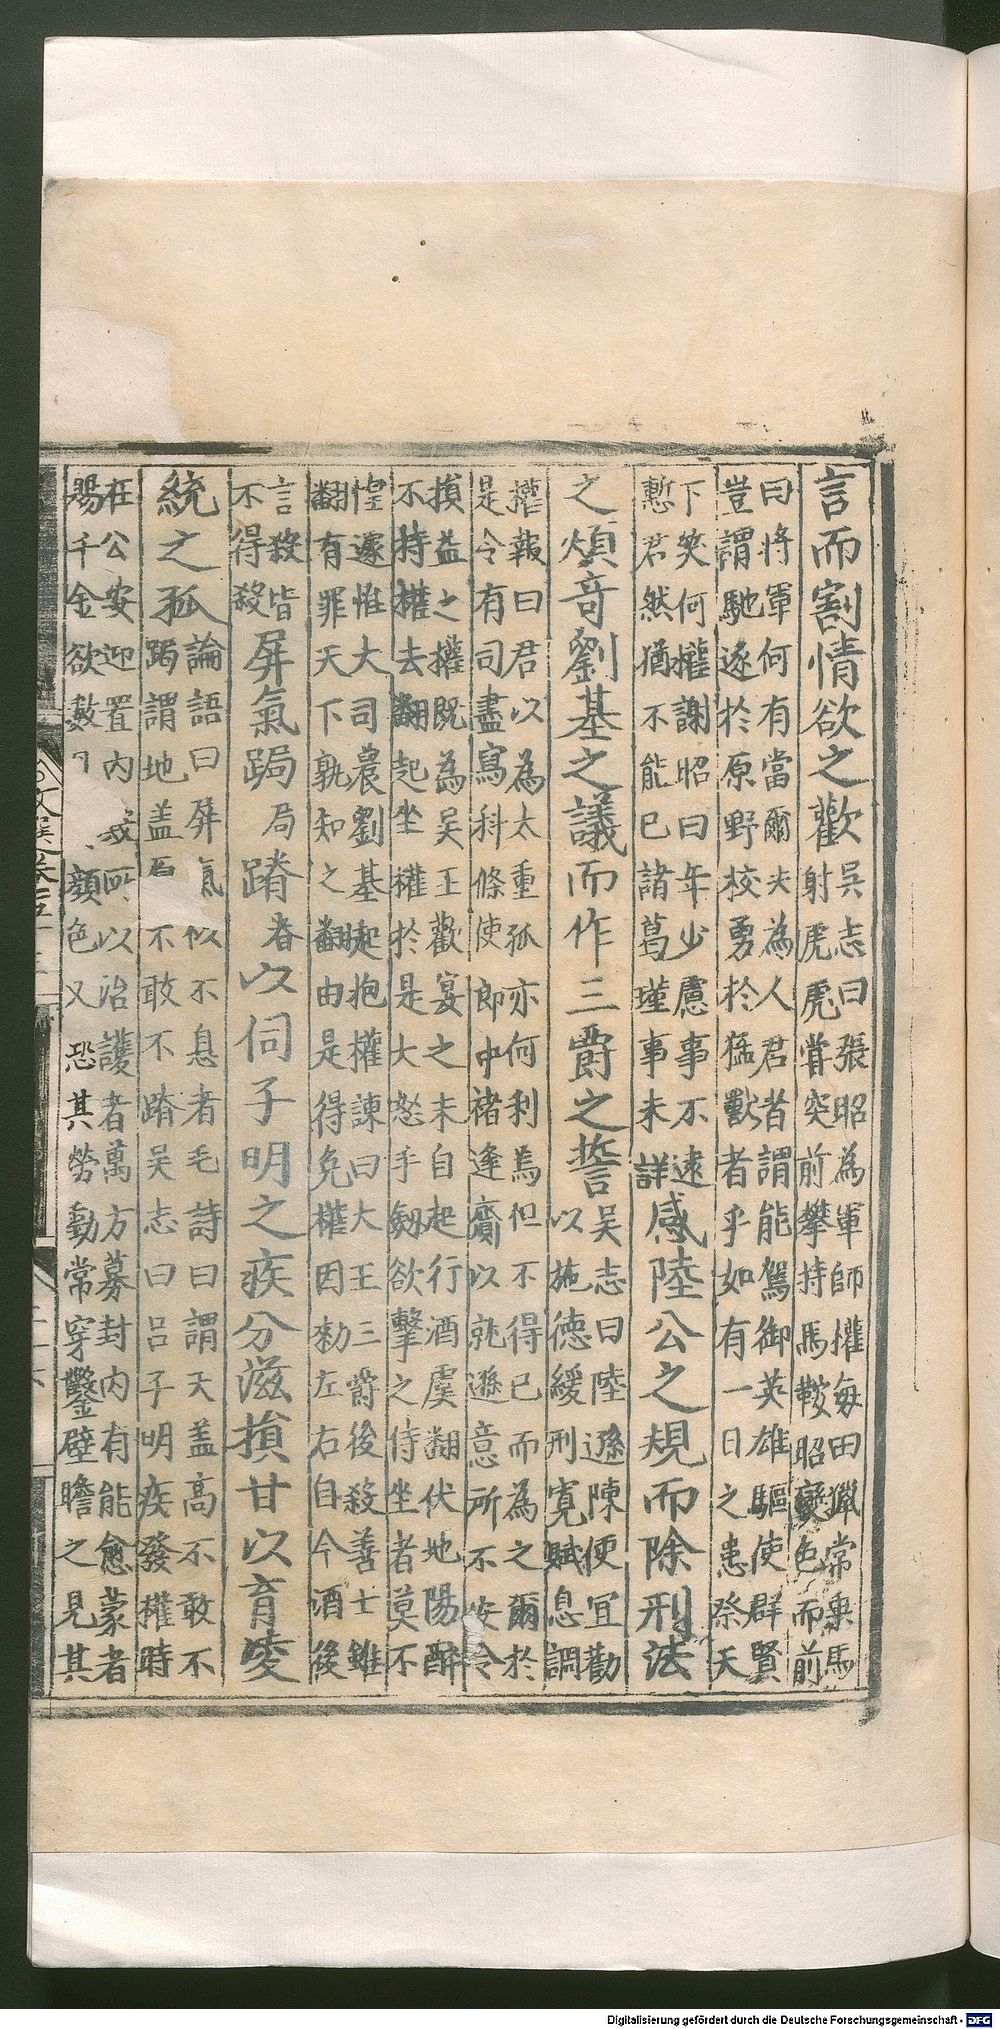 言而割情欲之歡吳志曰張昭為軍師權每田獵常乘馬
射虎虎嘗突前攀持馬鞍昭變色而前
曰將軍何有當爾夫為人君者謂能駕御英雄驅使群賢
豈謂馳逐於原野校勇於猛獸者乎如有一日之患祭天
下笑何權謝昭曰年少慮事不遠
慙君然猶不能已諸葛瑾事未詳感陸公之規而除刑法
之煩竒劉基之議而作三爵之誓吳志曰陸遜陳便宜勸
以施德緩刑寬賦息調
權報曰君以為太重孤亦何利焉但不得已而為之爾於
是令有司盡寫科條使郎中褚逢齎以就遜意所不安令
損益之權既為吳王歡宴之末自起行酒虞翻伏地陽醉
不持權去翻起坐權於是大怒手劒欲擊之侍坐者莫不
惶遽惟大司農劉基起抱權諫曰大王三爵後殺善士雖
翻有罪天下孰知之翻由是得免權因勑左右自今酒後
言殺皆
不得殺屏氣跼局蹐脊以伺子明之疾分滋損甘以育凌
統之孤論語曰屏氣似不息者毛詩曰謂天盖高不敢不
跼謂地盖不敢不蹐吳志曰呂子明疾發權時
在公安迎置内所以治護者萬方募封内有能愈蒙者
賜千金欲數顏色又恐其勞動常穿鑿壁瞻之見其
文選卷
Digitalisierung gefördert durch die Deutsche Forschungsgemeinschaft - DFG